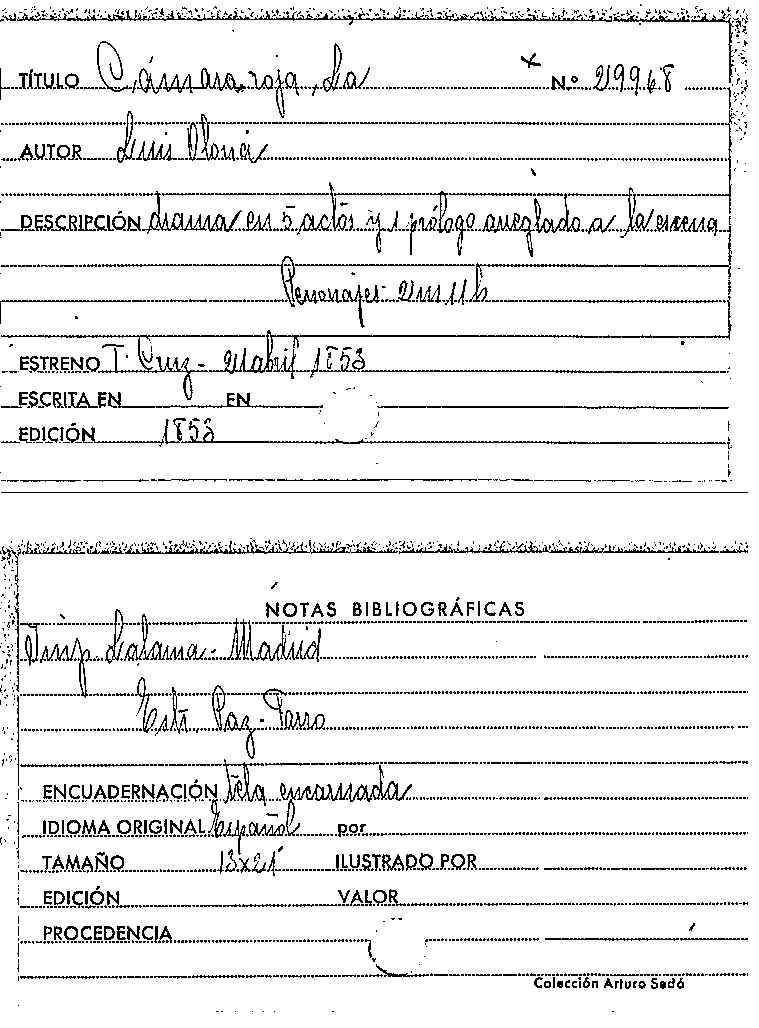 TÍTULO Cámara roja, La N.º 29968
AUTOR Luis Olona
DESCRIPCIÓN drama en 5 actos y 1 prólogo arreglado a la escena
Personajes 2m 11h
ESTRENO T. Cruz - abril 1853
ESCRITA EN EN
EDICIÓN 1853
NOTAS BIBLIOGRÁFICAS
Imp Lalama - Madrid
Estr. Paz -
ENCUADERNACIÓN tela encarnada
IDIOMA ORIGINAL Español por
TAMAÑO 13x21 ILUSTRADO POR
EDICIÓN VALOR
PROCEDENCIA
Colección Arturo Sedó